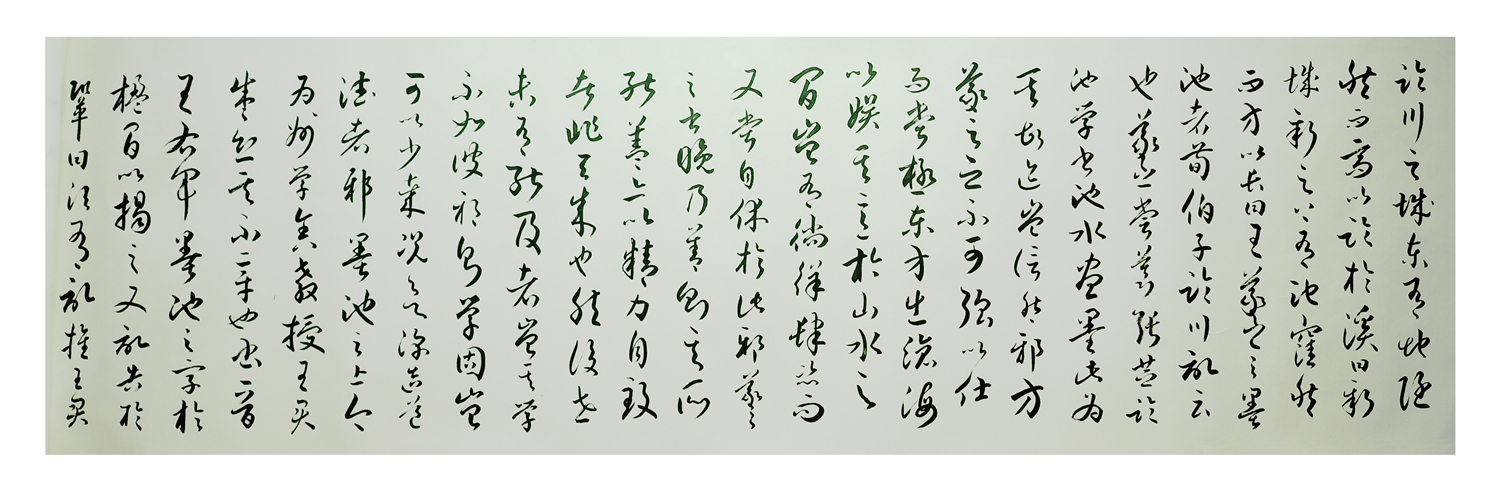 臨川之城東有地隱
然而高以臨於溪曰新
城新之上有池窪然
而方以長曰王羲之之墨
池者荀伯子臨川記云
也羲之嘗慕張芝臨
池学書池水盡墨此為
其故迹豈信然邪方
羲之之不可强以仕
而嘗極東方出滄海
以娱其意於山水之
間豈有徜徉肆恣而
又嘗自休於此邪羲之
之書晚乃善則其所
能蓋亦以精力自致
者非天成也然後世
未有能及者豈其学
不如彼邪則学固豈
可以少哉況欲深造道
德者邪墨池之上今
為州学舍教授王君
盛恐其不章也書晉
王右軍墨池之字於
楹間以揭之又記告於
鞏曰須有記推王君